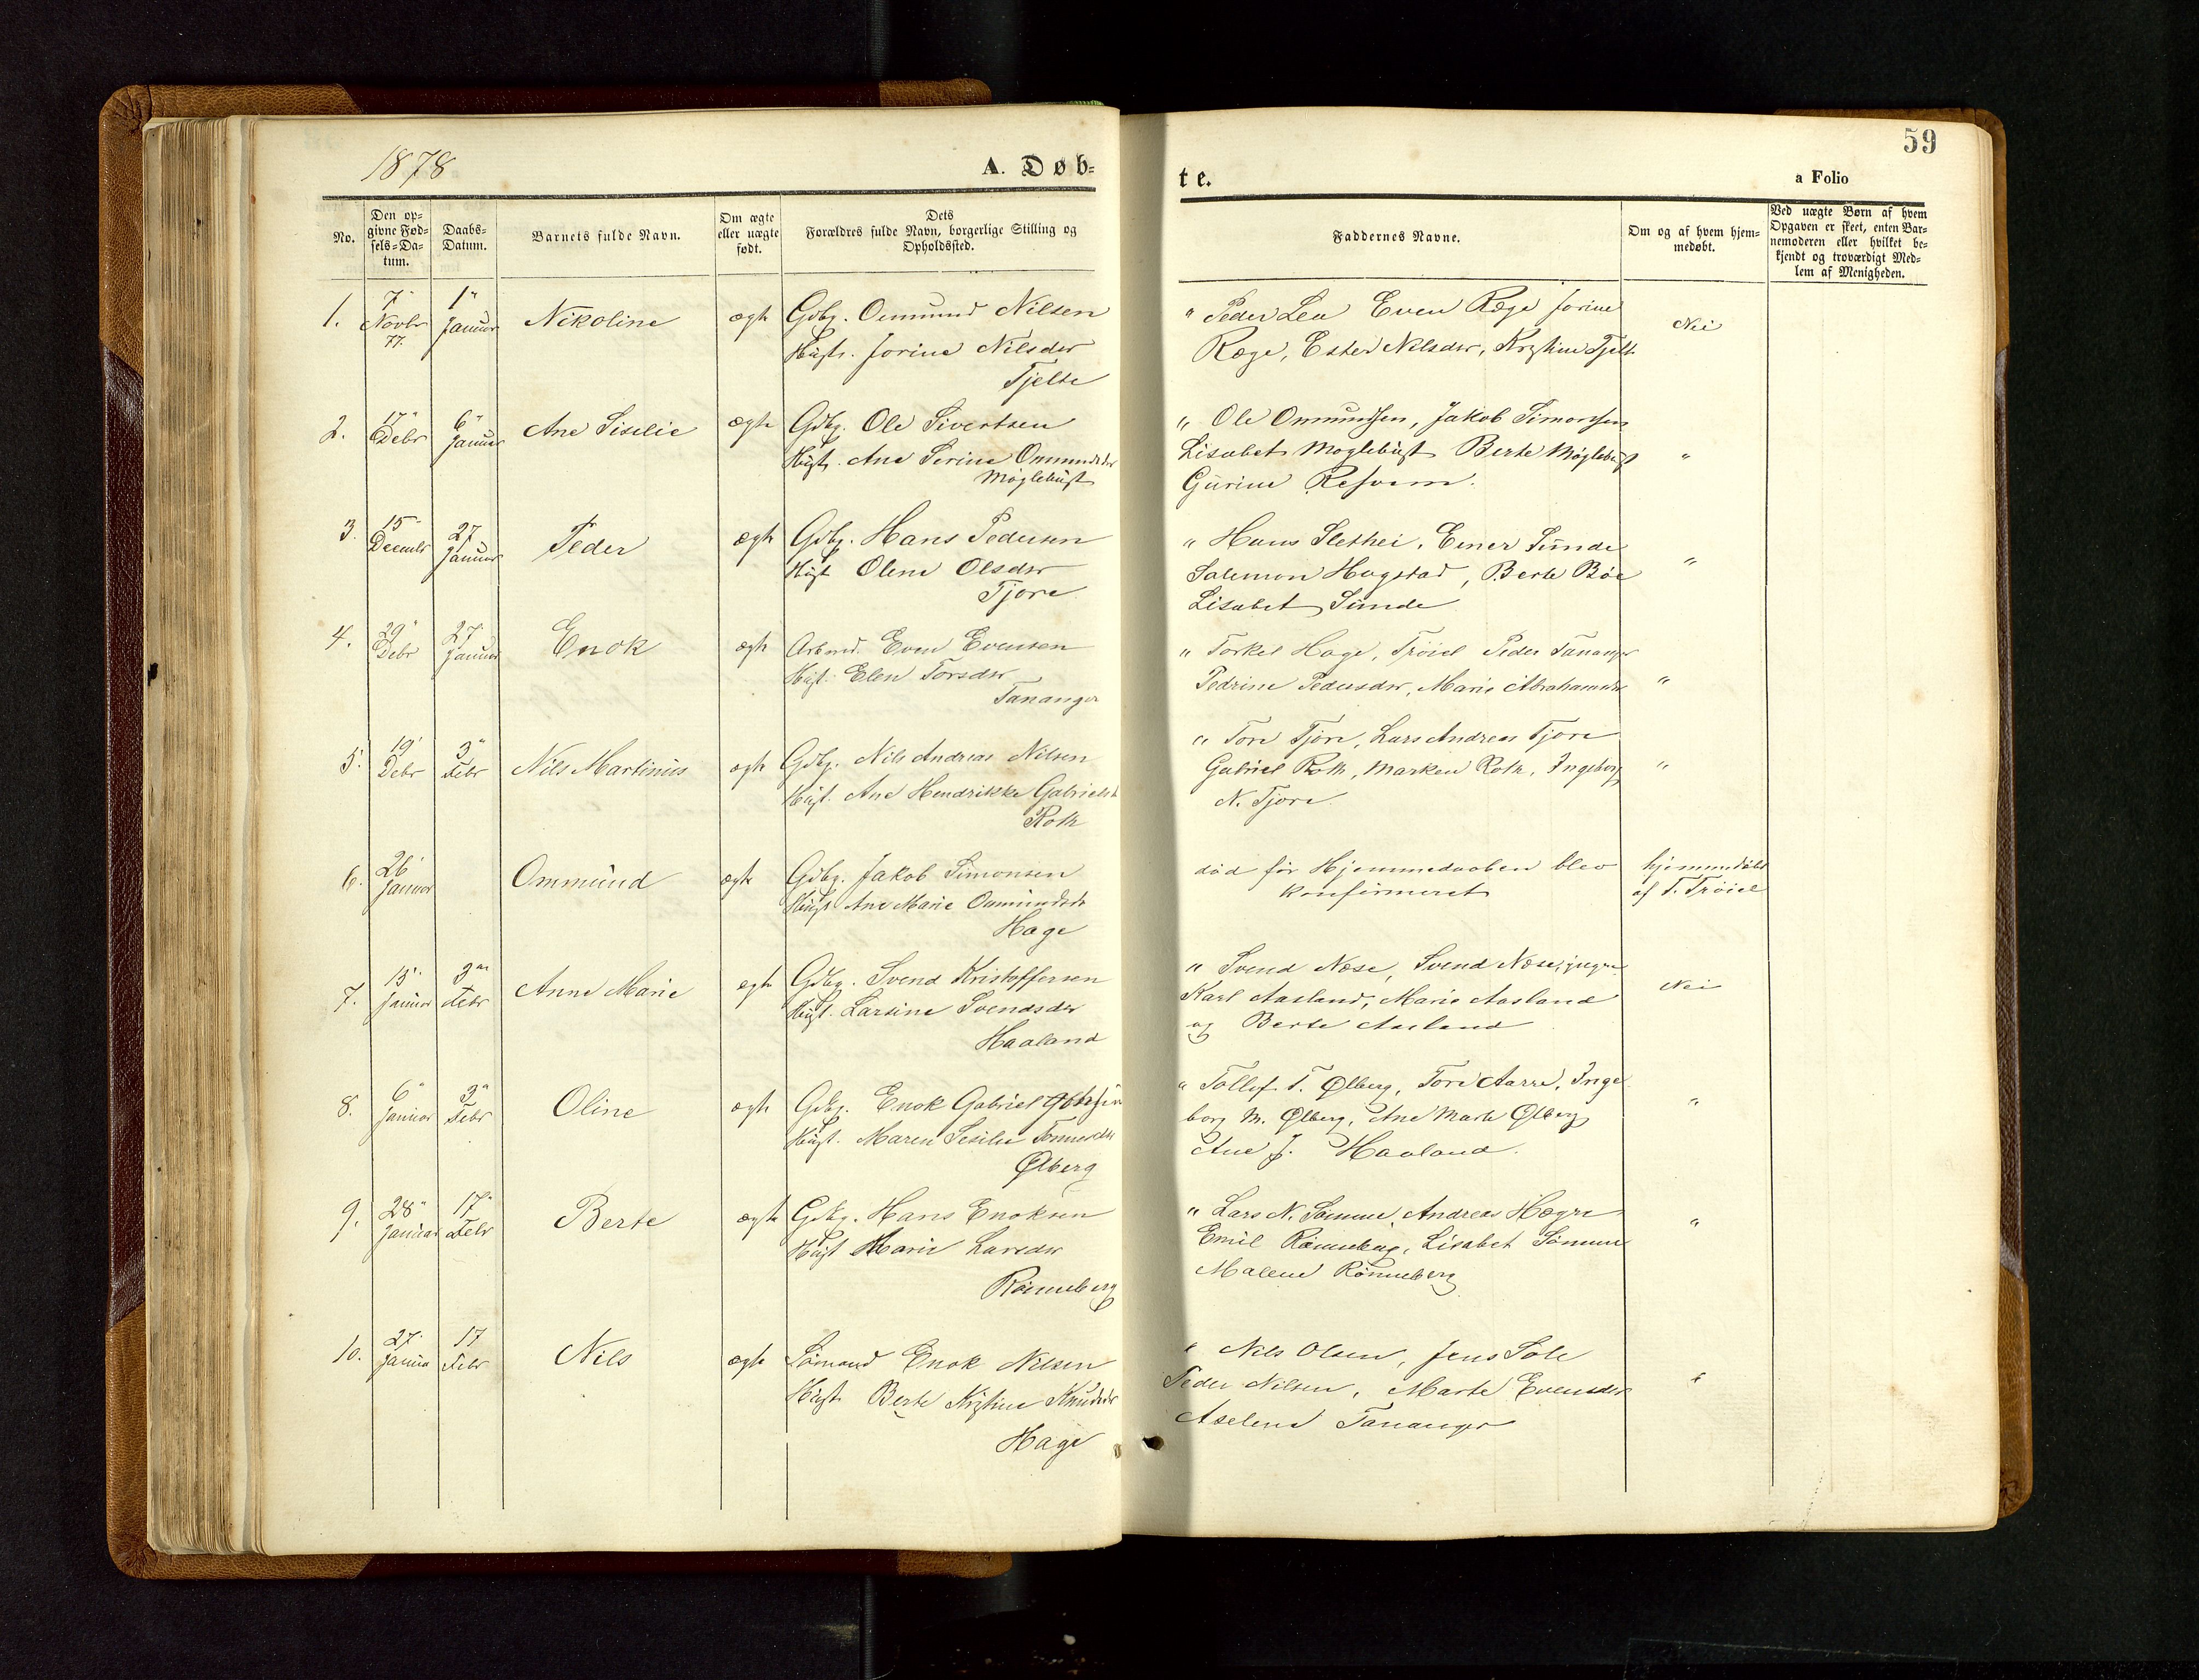 1878
A. Døb=
te.
59
a Folio
No.
Den op=
givne Fød=
sels=Da=
tum.
Daabs=
Datum.
Barnets fulde Navn.
Om ægte
eller uægte
født.
Dets
Forældres fulde Navn, borgerlige Stilling og
Opholdssted.
Faddernes Navne.
Om og af hvem hjem=
medøbt.
Ved uægte Børn af hvem
Opgaven er skeet, enten Bar=
nemoderen eller hvilket be=
kjendt og troværdigt Med=
lem af Menigheden.
1. 7" Novbr 77. 1" Januar Nikoline ægte Gdbg. Ommund Nilsen
Hust. Jorine Nilsdtr
Tjelte
" Peder Lea Even Rege Jorine
Rege, Ester Nilsdtr, Kristine Tjelte
Nei
2. 17" Debr 6" Januar Ane Siselie ægte Gdbg. Ole Sivertsen
Hust. Ane Serine Ommundsdtr
Møglebust
" Ole Ommundsen, Jakob Simonsen
Lisabet Møglebust Berte Møglebust "
Gurine
3. 15" Decembr 27 Januar Peder ægte Gdbg. Hans Pedersen
Hust Olene Olsdtr
Tjore
" Hans Slethei, Einer Sunde
Salemon Hogstad, Berte Bøe "
Lisabet Sunde
4. 29" Debr 27" Januar Enok ægte Arbmd. Even Evensen
Hust. Elen Torsdtr
Tananger
" Torkel Hage, Trøiel Peder Tananger
Pedrine Pedersdtr, Marie Abrahamsdtr "
5. 19' Debr 3" Febr Nils Martinus ægte Gdbg. Nils Andreas Nilsen
Hust. Ane Hendrikke Gabrielsd
Roth
" Tore Tjore, Lars Andreas Tjore
Gabriel Roth, Marken Roth, Ingeborg "
N. Tjore.
6. 26' Januar Ommund ægte Gdbg. Jakob Simonsen
Hust Ane Marie Ommundsdt
Hage
død før Hjemmedaaben blev
konfirmeret
hjemmedøbt
af T. Trøiel
7. 15" Januar 3" Febr Anne Marie ægte Gdbg. Svend Kristoffersen
Hust. Larsine Svendsdtr
Haaland
" Svend Næse, Svend Næse, yngre
Karl Aasland, Marie Aasland
og Berte Aasland
Nei
8. 6" Januar 3" Febr Oline ægte Gdbg. Enok Gabriel
Hust. Maren Sesilie
Ølberg
" Tollef T. Ølberg, Tore Aarre, Inge
borg M. Ølberg, Ane Marte Ølberg "
Ane J. Haaland.
9. 28" Januar 17" Febr Berte ægte Gdbg. Hans Enoksen
Hust Marie Larsdtr
Rønneberg
" Lars N. Sømme, Andreas Hegre
Emil Rønneberg, Lisabet Sømme "
Malene Rønneberg
10. 27" Januar 17 Febr Nils ægte Sømand Enok Nilsen
Hust Berte Kristine Knudsdtr
Hage
" Nils Olsen, Jens Sole
Peder Nilsen, Marte Evensdtr "
Aselene Tananger